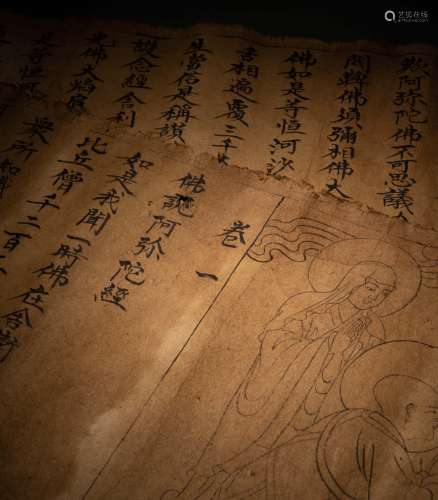 歎阿弥陀佛不可思議
閦鞞佛須彌相佛大
佛如是等恒河沙
舌相遍覆三千大
生當信是稱讚
護念經舍利
光佛大焰肩
是等恒河
卷一
佛說阿弥陀經
如是我聞一時佛在舍衛
比丘僧千二百五
衆所知識
艺狐在线